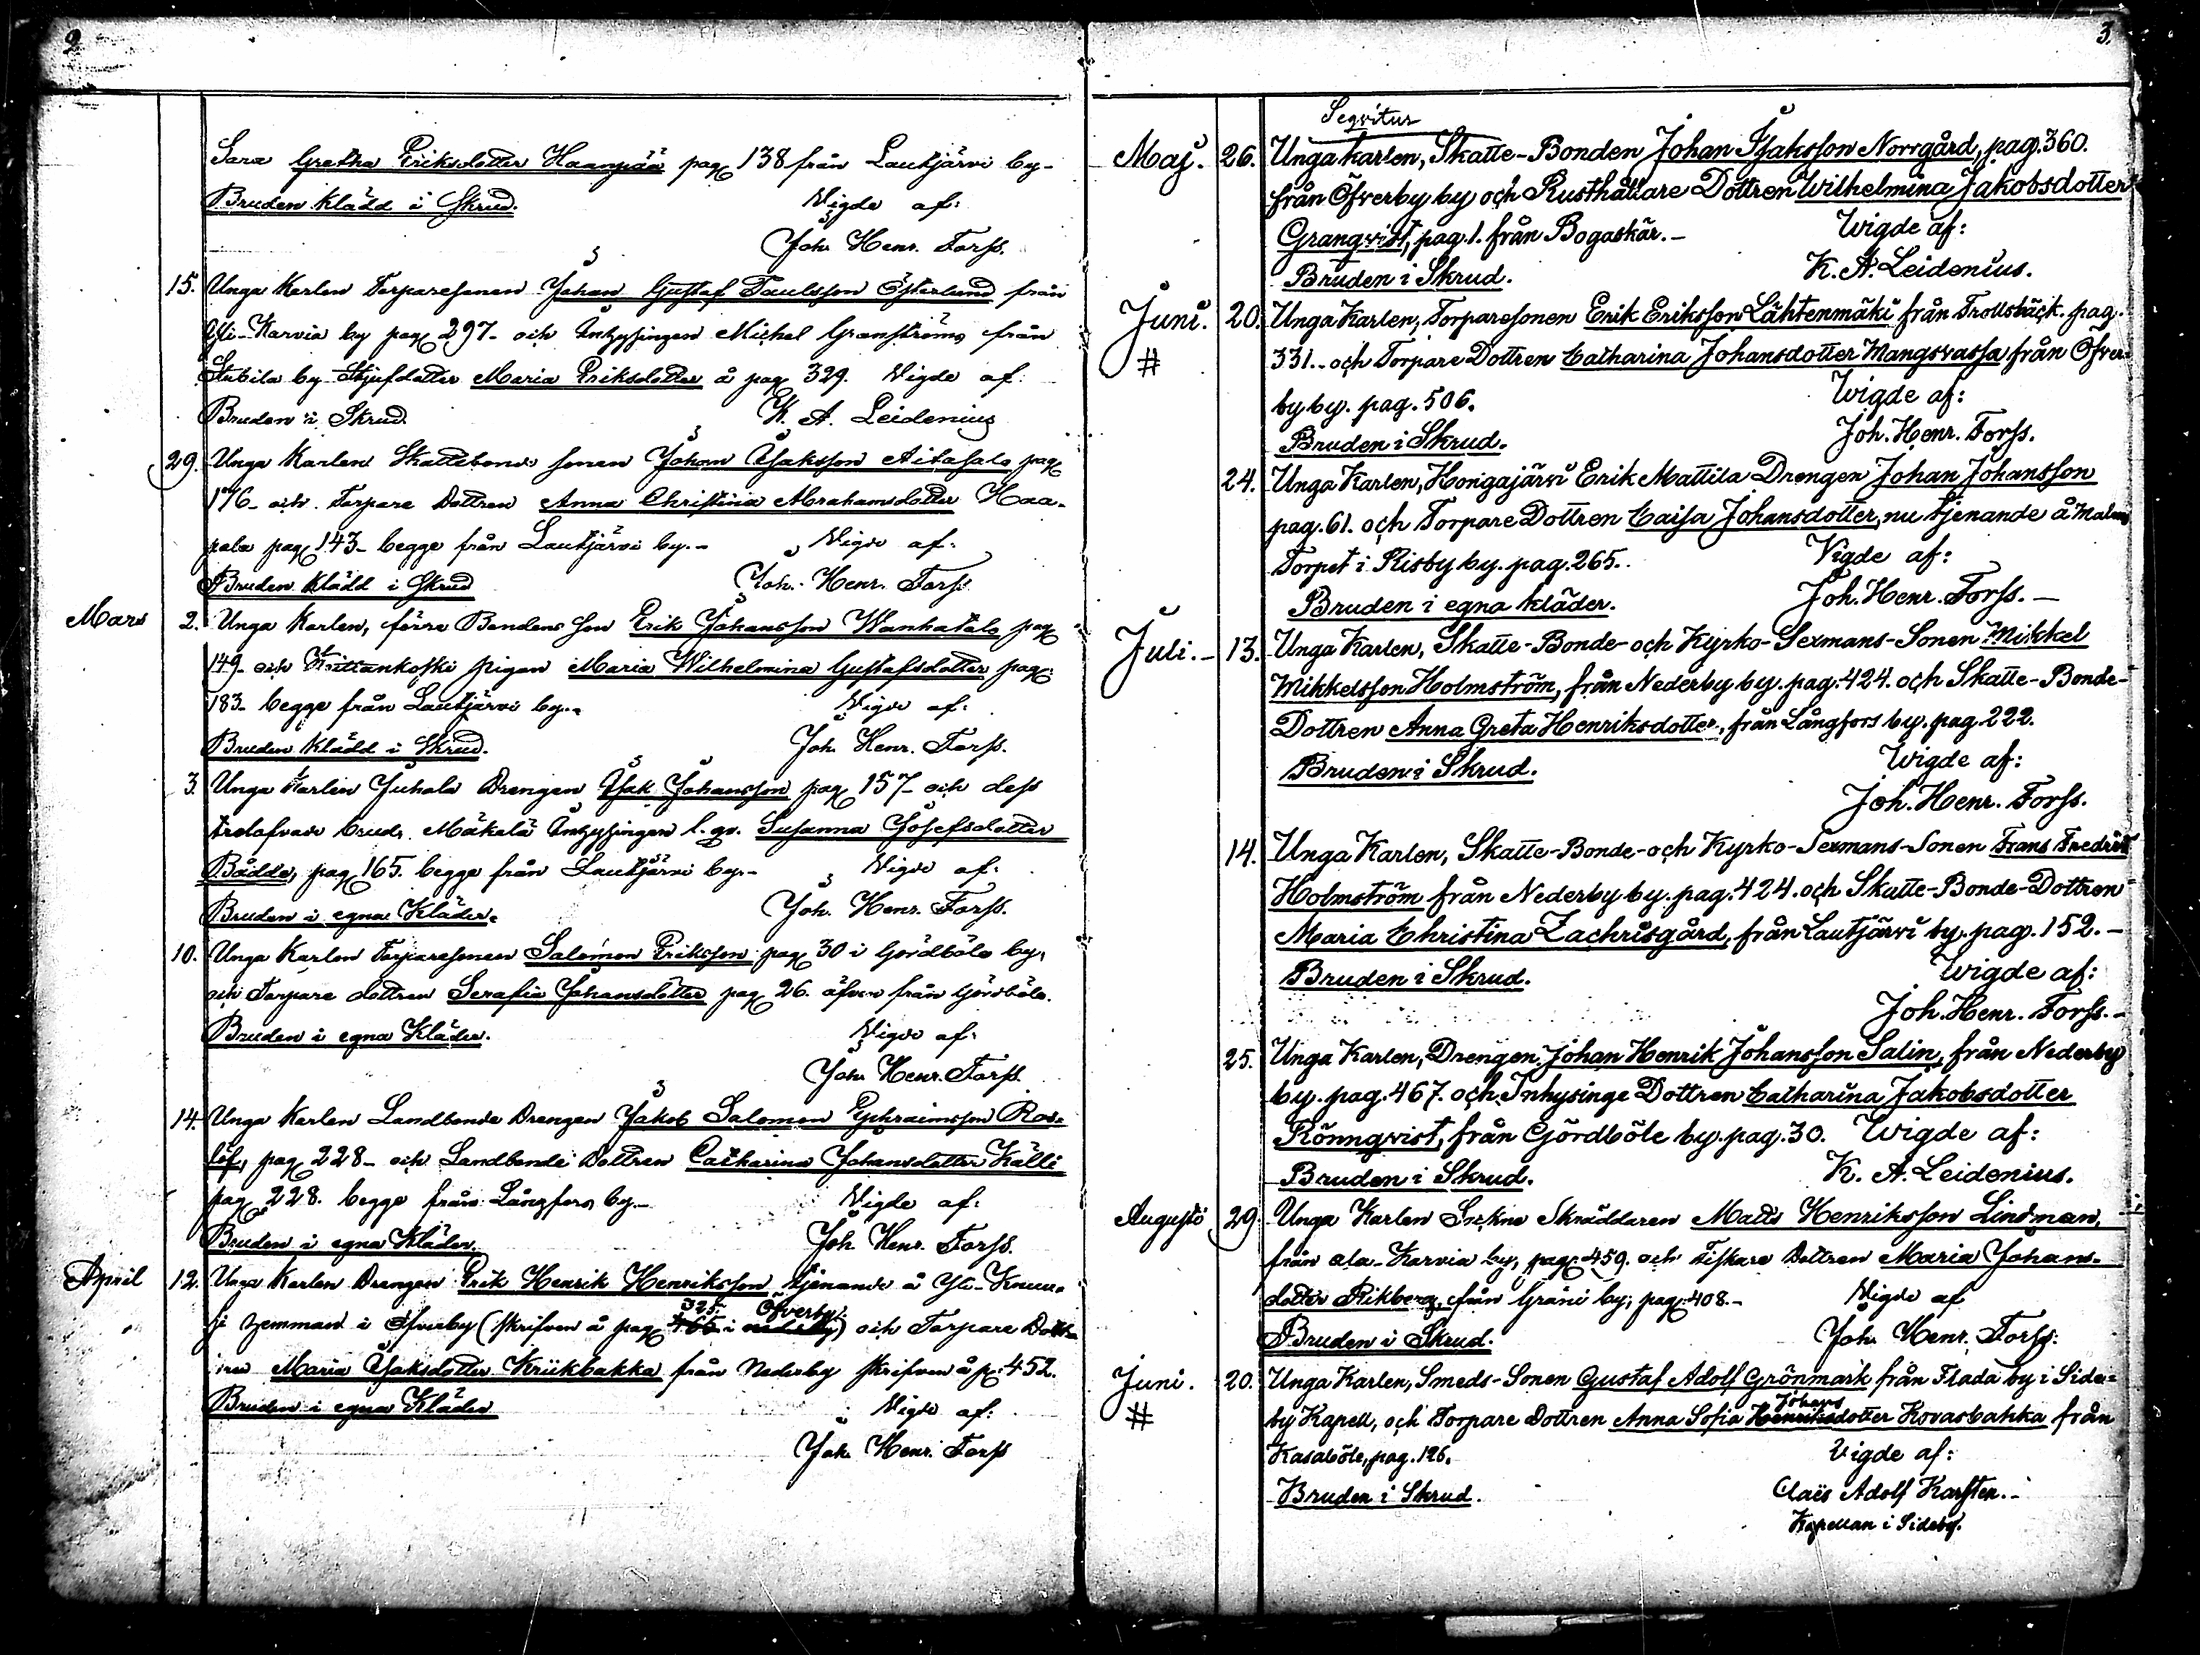 2
Sara Gretha Eriksdotter Haanpää pag 138 från Lautjärvi by-
Bruden klädd i Skrud. Vigde af:
Joh. Henr. Forss.
15. Unga Karlen Torparesonen Johan Gustaf Paulsson Österlund från
Yli-Karvia by pag 297- och Inhysingen Michel Granströms från
Stubila by Styfdotter Maria Eriksdotter å pag 329. Vigde af:
Bruden i Skrud. K. A. Leidenius
29. Unga Karlen Skattebonde sonen Johan Isaksson Aitasalo pag
176- och Torpare Dottren Anna Christina Abrahamsdotter Haa-
pala pag 143- begge från Lautjärvi by.- Vigde af:
Bruden klädd i Skrud Joh. Henr. Forss
Mars 2. Unga Karlen, förre Bondens son Erik Johansson Wanhatalo pag
149- och pigan Maria Wilhelmina Gustafsdotter pag
183- begge från Lautjärvi by.- Vigde af:
Bruden klädd i Skrud. Joh. Henr. Forss.
3. Unga Karlen Juhola Drengen Isak Johansson pag 157- och dess
trolofvade brud, Mäkelä Inhysingen l. qv. Susanna Josefsdotter
Bådde, pag 165. begge från Lautjärvi by.- Vigde af:
Bruden i egna Kläder. Joh. Henr. Forss.
10. Unga Karlen Torparesonen Salomon Eriksson pag 30 i Gördböle by,
och Torpare dottren Serafia Johansdotter pag 26. äfven från Gördböle.
Bruden i egna Kläder. Vigde af:
Joh. Henr. Forss.
14. Unga Karlen Landbonde Drengen Jakob Salomon Ephraimsson Ros-
löf, pag 228- och Landbonde Dottren Catharina Johansdotter Källi
pag 228. begge från Långfors by.- Vigde af:
Bruden i egna Kläder. Joh. Henr. Forss.
April 12. Unga Karlen Drengen Erik Henrik Henriksson tjenande å Yli-Knuu-
325. Öfverby
si hemman i Öfverby (skrifven å pag 465 i nederby) och Torpare Dott-
ren Maria Isaksdotter Kriikbakka från Nederby skrifven å p: 452.
Bruden i egna Kläder Vigde af:
Joh. Henr. Forss
3.
Seqvitur
Maj. 26. Unga karlen, Skatte-Bonden Johan Isaksson Norrgård, pag. 360.
från Öfverby by och Rusthållare Dottren Wilhelmina Jakobsdotter
Granqvist, pag. 1. från Bogaskär.- Wigde af:
Bruden i Skrud. K. A. Leidenius.
Juni. 20. Unga Karlen, Torparesonen Erik Eriksson Lähtenmäki från Trollbäck. pag.
# 331.. och Torpare Dottren Catharina Johansdotter Mangsvassa från Öfver-
by by. pag. 506. Wigde af:
Bruden i Skrud. Joh. Henr. Forss.
24. Unga Karlen, Hongajärvi Erik Mattila Drengen Johan Johansson
pag. 61. och Torpare Dottren Caisa Johansdotter, nu tjenande å Malms
Torpet i Risby by. pag. 265.. Vigde af:
Bruden i egna kläder. Joh. Henr. Forss.-
Juli.- 13. Unga Karlen, Skatte-Bonde- och Kyrko-Sexmans-Sonen Mikkel
Mikkelsson Holmström, från Nederby by. pag. 424. och Skatte-Bonde-
Dottren Anna Greta Henriksdotter, från Långfors by. pag. 222.
Wigde af:
Bruden i Skrud.
Joh. Henr. Forss.
14. Unga Karlen, Skatte-Bonde-och Kyrko-Sexmans-Sonen Frans Fredrik
Holmström från Nederby by. pag. 424. och Skatte-Bonde-Dottren
Maria Christina Zachrisgård, från Lautjärvi by. pag. 152.-
Bruden i Skrud. Wigde af:
Joh. Henr. Forss.-
25. Unga Karlen, Drengen Johan Henrik Johansson Salin, från Nederby
by. pag. 467. och Inhysinge Dottren Catharina Jakobsdotter
Rönnqvist, från Gjördböle by. pag. 30. Wigde af:
Bruden i Skrud. K. A. Leidenius.
Augusti 29. Unga Karlen Sockne Skräddaren Matts Henriksson Lindman,
från Ala-Karvia by, pag. 459. och Fiskare Dottren Maria Johans-
dotter Rikberg, från Gräni by, pag. 408.- Vigde af
Bruden i Skrud. Joh. Henr. Forss:
Juni. 20. Unga Karlen, Smeds-Sonen Gustaf Adolf Grönmark från Flada by i Side-
Johans
# by Kapell, och Torpare Dottren Anna Sofia Henriksdotter Kovasbakka från
Kasaböle, pag. 126. Vigde af:
Bruden i Skrud. Claës Adolf Karsten.-
Kapellan i Sideby.